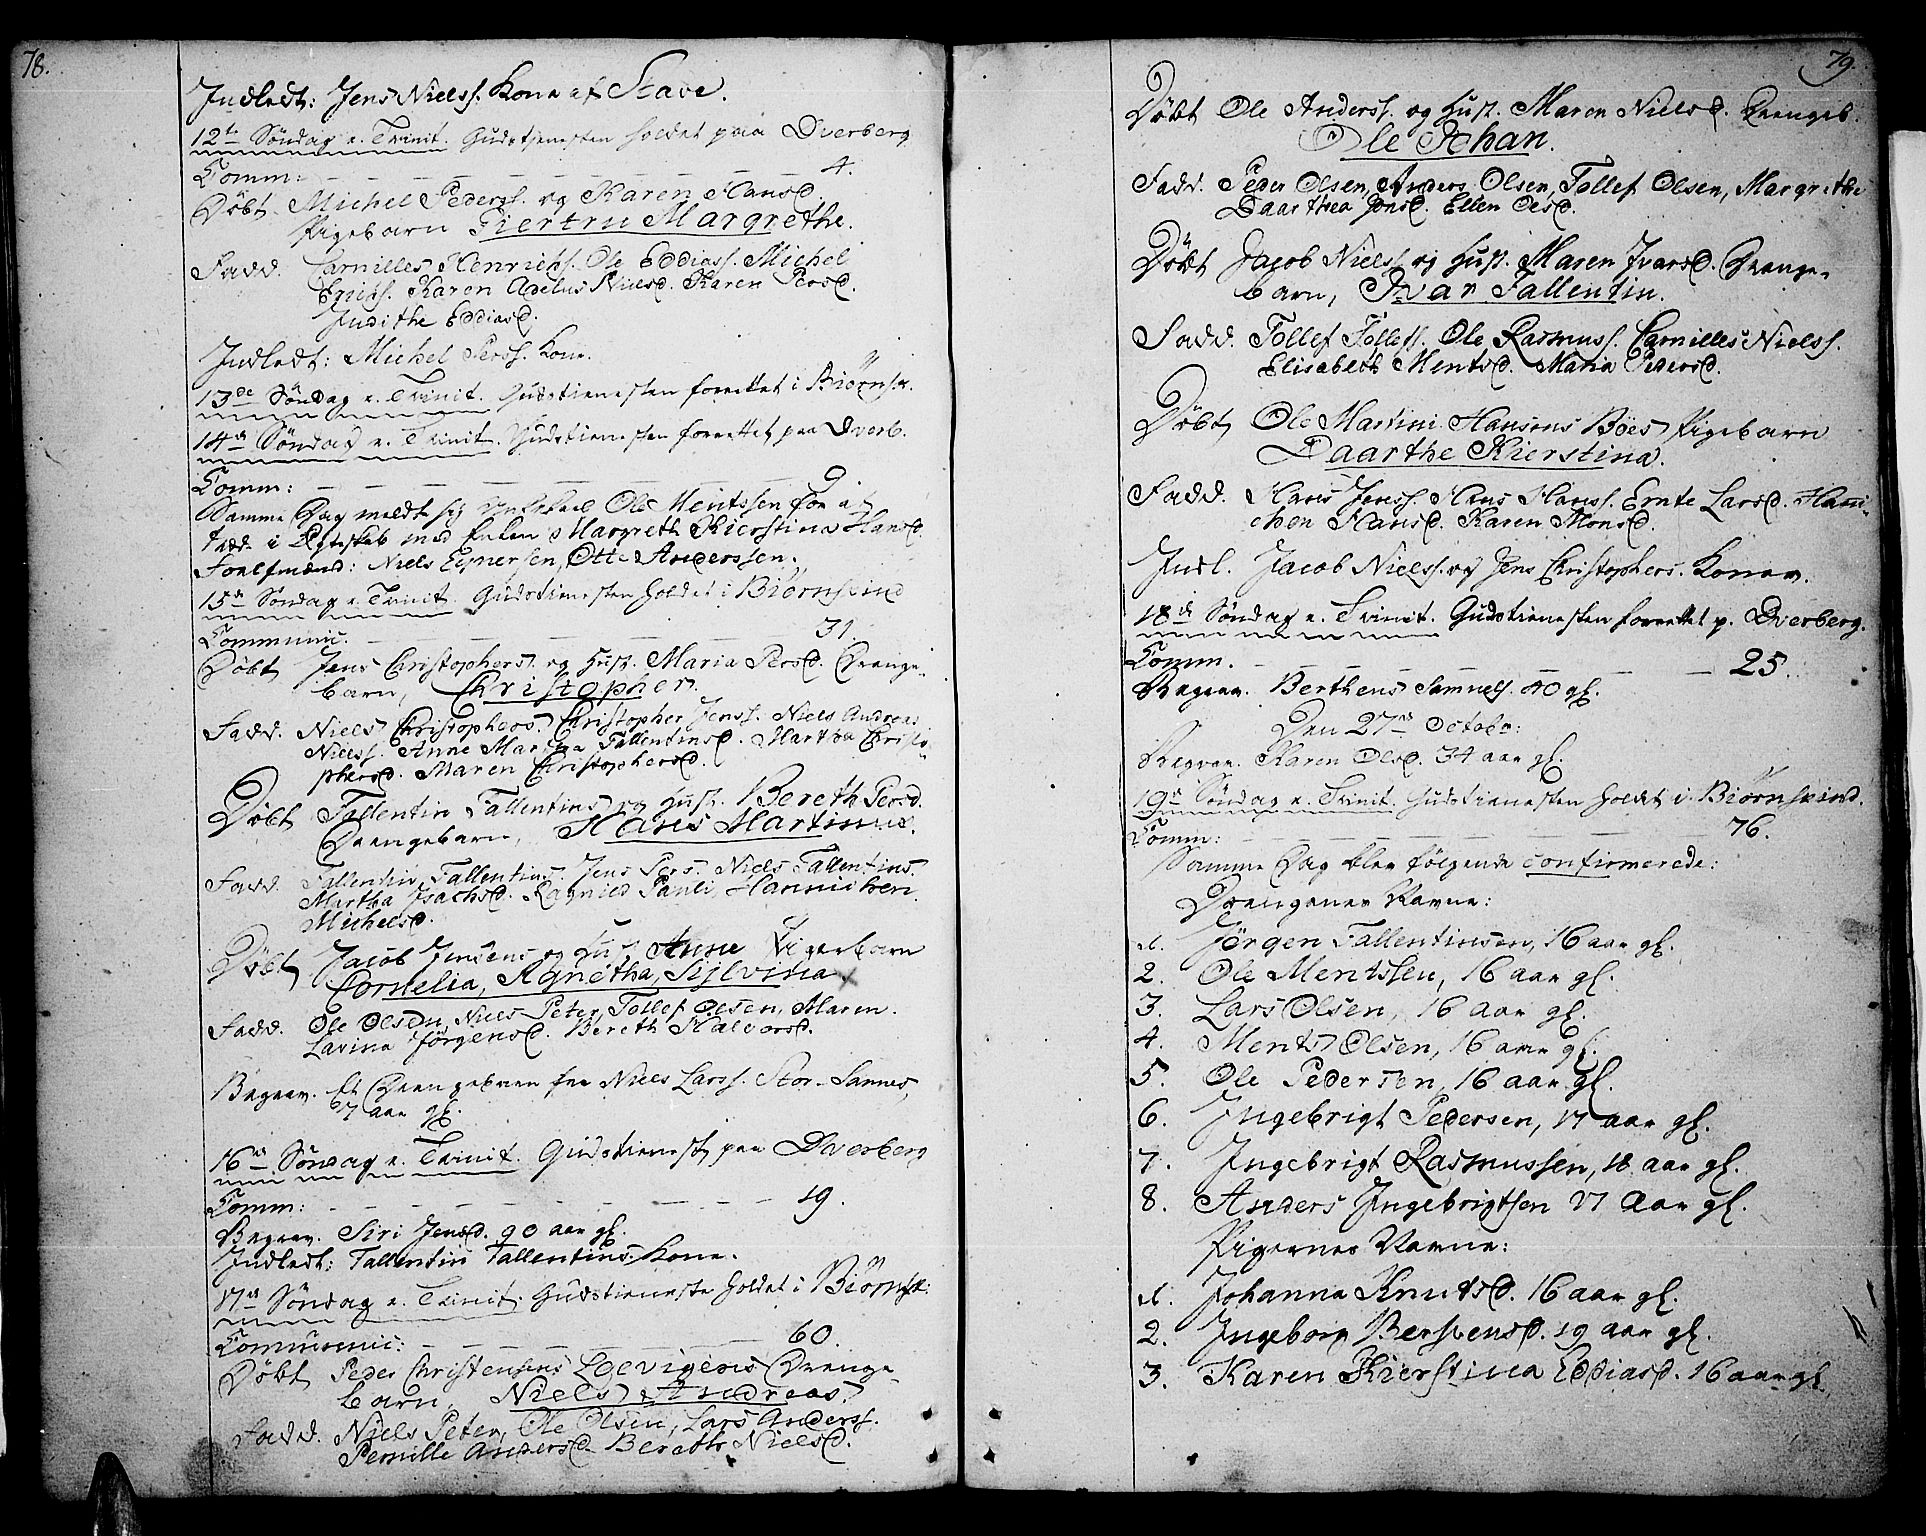 78.
Indledt: Jens Nielss. Kone af Stave.
12te Søndag e. Trinit. Gudstienesten holdet paa Dverberg
Comm: 4.
Døbt Michel Pederss. og Karen Hansd.
Pigebarn Giertru Margrethe.
Fadd. Carnilles Henrichs. Ole Eddiass. Michel
Erichs. Karen Adelus Nielsd. Karen Persd.
Judithe Eddiasd.
Indledt: Michel Perss. Kone.
13de Søndag e. Trinit. Gudstienesten forrettet i Biørnsk.
14de Søndag e. Trinit. Gudstienesten forrettet paa Dverb.
Comm: 9.
Samme Dag meldt sig Ole Mentssen for at
træde i Egteskab med Enken Margreth Kierstina Hansd.
Forlfmænd: Niels Egnersen, Otte Anderssen.
15de Søndag e. Trinit. Gudstienesten holdet i Biørnskind
Communic. 31.
Døbt Jens Christophers. og Hust. Maria Persd. Drenge-
barn, Christopher.
Fadd. Niels Christophers. Christopher Jenss. Niels Andreas
Nielss. Anne Martha Fallentinsd. Martha Christo-
phersd. Maren Christophersd.
Døbt Fallentin Fallentins. og Hust. Bereth Persd.
Drengebarn, Hans Martinus.
Fadd. Fallentin Fallentins. Jens Perss. Niels Fallentins.
Martha Isachsd. Ragnild Pauli, Hannichen
Michelsd.
Døbt Jacob Jensens og Hust. Anne Pigebarn
Cornelia, Agnetha, Sylvina x
Fadd. Ole Olsen, Niels Peter, Tollef Olsen, Maren
Lavina Jørgensd. Bereth Halvorsd.
Begrav. Et Drengebarn fra Niels Larss. Stor-Sannes,
7 aar gl.
16de Søndag e. Trinit. Gudstienest paa Dverberg
Comm: 19.
Begrav. Siri Jensd. 90 aar gl.
Indledt: Fallentin Fallentins. Kone.
17de Søndag e. Trinit. Gudstieneste holdet i Biørnsk:
Communic: 60.
Døbt Peder Christensens Loevigens Drenge-
barn, Niels Andreas
Fadd. Niels Peter, Ole Olsen, Lars Anderss.
Pernille Andersd. Bereth Nielsd.
79.
Døbt Ole Anderss. og Hust. Maren Nielsd. Drengeb.
Ole Johan.
Fadd. Peder Olsen, Anders Olsen, Tollef Olsen, Margrethe
Daarthea Jonsd. Ellen Olsd.
Døbt Jacob Nielss. og Hust. Maren Ivarsd. Drenge-
barn, Ivar Fallentin.
Fadd. Tollef Tollefs. Ole Rasmuss. Carnilles Nielss.
Elisabeth Mentsd. Maria Pedersd.
Døbt Ole Martini Hansens Böes Pigebarn
Daarthe Kierstina.
Fadd. Hans Jenss. Hans Hanss. Ernte Larsd. Hanni-
chen Hansd. Karen Monsd.
Indl. Jacob Nielss. og Jens Christophers. Koner.
18de Søndag e. Trinit. Gudstienesten forrettet p. Dverberg.
Comm. 25.
Begrav. Berthens Samuels. 40 gl.
Den 27de Octobr:
Begrav. Karen Olsd. 34 aar gl.
19de Søndag e. Trinit. Gudstienesten holdet i Biørnskind.
Comm: 76.
Samme Dag blev følgende confirmerede:
Drengenes Navne:
1. Jörgen Fallentinsen, 16 aar gl.
2. Ole Mentssen, 16 aar gl.
3. Lars Olsen, 16 aar gl.
4. Ments Olsen, 16 aar gl.
5. Ole Pedersen, 16 aar gl.
6. Ingebrigt Pedersen, 17 aar gl.
7. Ingebrigt Rasmussen, 18 aar gl.
8. Anders Ingebrigtsen 17 Aar gl.
Pigernes Navne:
1. Johanna Knutsd. 16 aar gl.
2. Ingeborg Bersvensd. 19 aar gl.
3. Karen Kierstina Eddiasd. 16 aar gl.